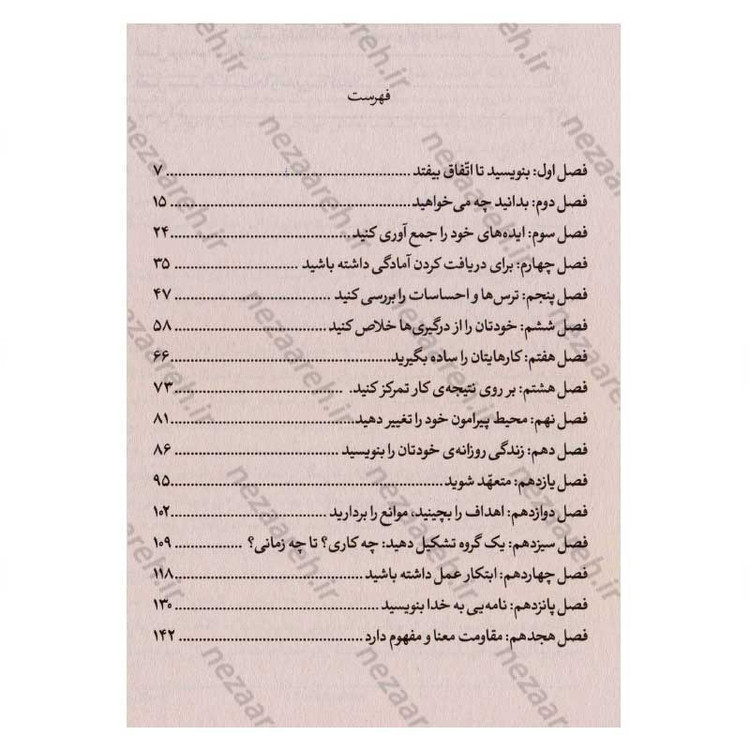 فهرست
فصل اول: بنویسید تا اتّفاق بیفتد ........ ۷
فصل دوم: بدانید چه می‌خواهید ........ ۱۵
فصل سوم: ایده‌های خود را جمع آوری کنید ........ ۲۴
فصل چهارم: برای دریافت کردن آمادگی داشته باشید ........ ۳۵
فصل پنجم: ترس‌ها و احساسات را بررسی کنید ........ ۴۷
فصل ششم: خودتان را از درگیری‌ها خلاص کنید ........ ۵۸
فصل هفتم: کارهایتان را ساده بگیرید ........ ۶۶
فصل هشتم: بر روی نتیجه‌ی کار تمرکز کنید. ........ ۷۳
فصل نهم: محیط پیرامون خود را تغییر دهید ........ ۸۱
فصل دهم: زندگی روزانه‌ی خودتان را بنویسید ........ ۸۶
فصل یازدهم: متعهّد شوید ........ ۹۵
فصل دوازدهم: اهداف را بچینید، موانع را بردارید ........ ۱۰۲
فصل سیزدهم: یک گروه تشکیل دهید: چه کاری؟ تا چه زمانی؟ ........ ۱۰۹
فصل چهاردهم: ابتکار عمل داشته باشید ........ ۱۱۸
فصل پانزدهم: نامه‌یی به خدا بنویسید ........ ۱۳۰
فصل هجدهم: مقاومت معنا و مفهوم دارد ........ ۱۴۲
nezaareh.ir